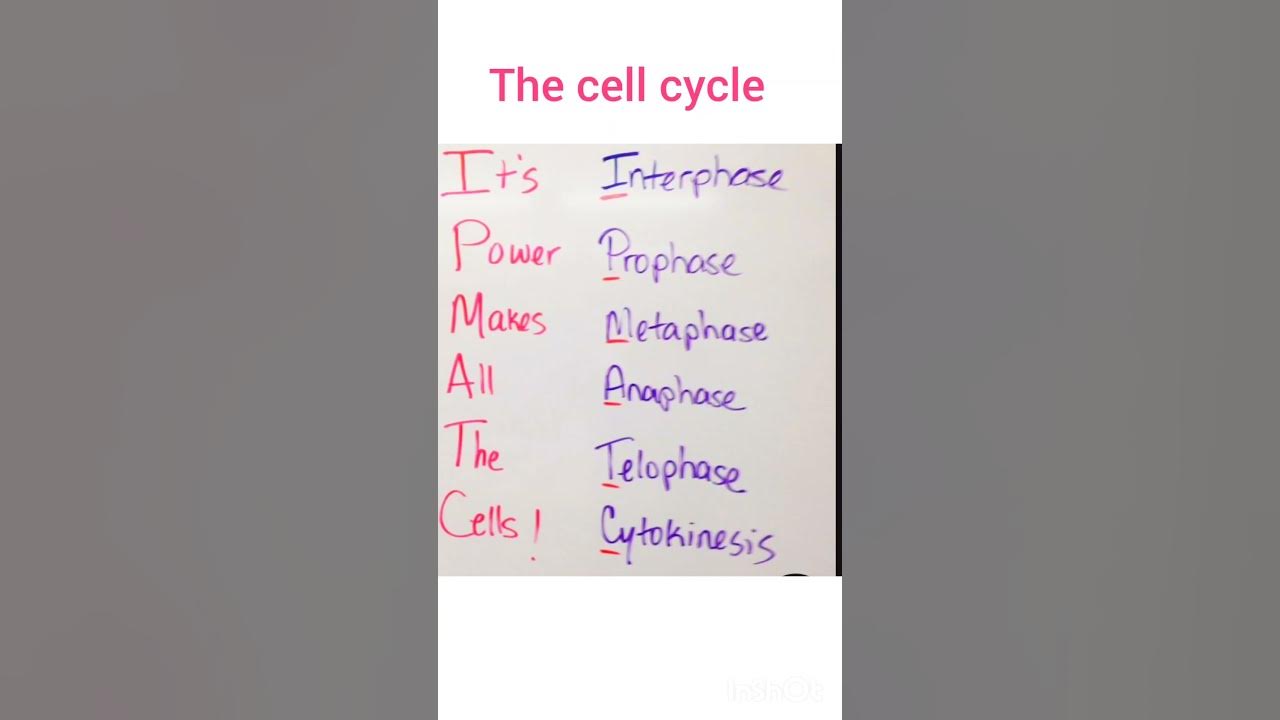 The cell cycle
It's Interphase
Power Prophase
Makes Metaphase
All Anaphase
The Telophase
Cells! Cytokinesis
InShOt